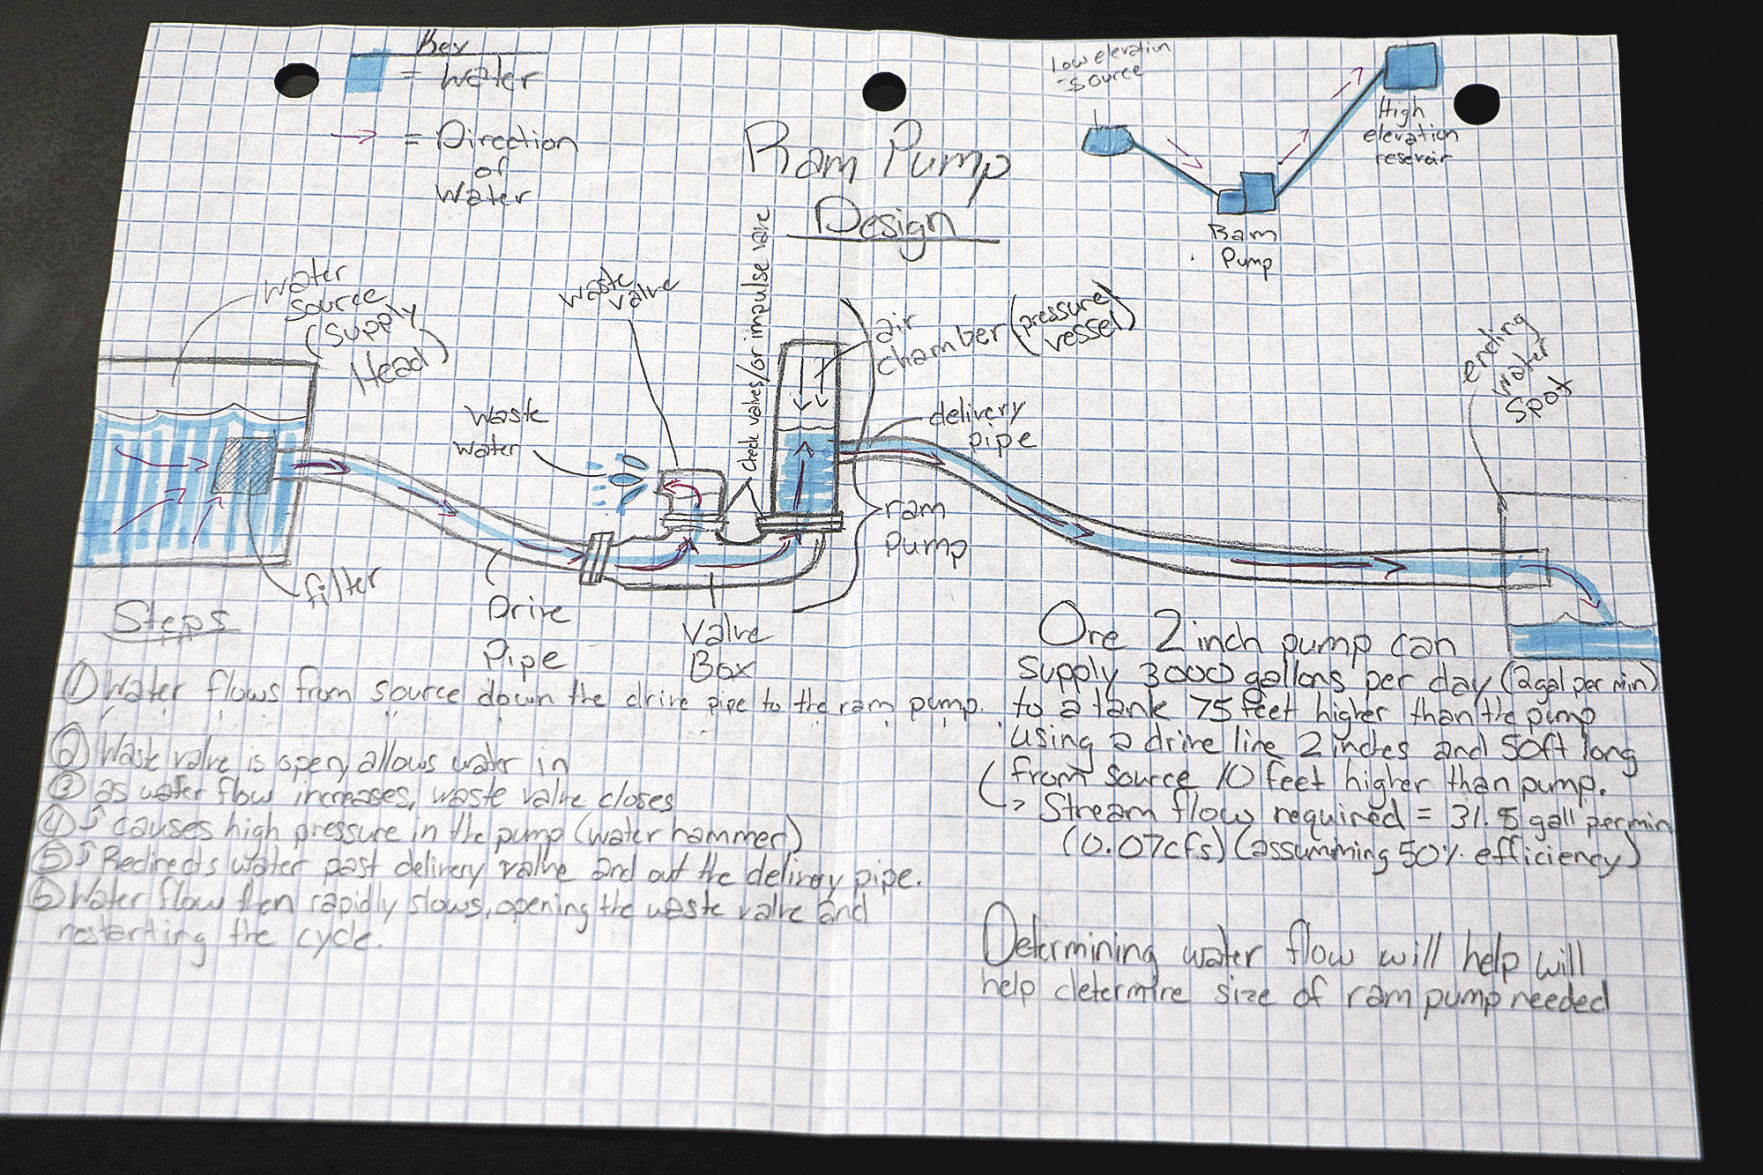 Key
= Water
= Direction
of
Water
Ram Pump
Design
Low elevation
-source
High
elevation
reservoir
Ram
Pump
Water
source
(Supply
Head)
waste
valve
check valves/or impulse valve
air
chamber (pressure
vessel)
ending
water
spot
waste
water
delivery
pipe
ram
pump
filter
Drive
Pipe
Valve
Box
Steps
① Water flows from source down the drive pipe to the ram pump.
② Waste valve is open, allows water in
③ as water flow increases, waste valve closes
④ ↳ causes high pressure in the pump (water hammer)
⑤ ↳ Redirects water past delivery valve and out the delivery pipe.
⑥ Water flow then rapidly slows, opening the waste valve and
restarting the cycle.
One 2 inch pump can
supply 3000 gallons per day (2gal per min)
to a tank 75 feet higher than the pump
using a drive line 2 inches and 50ft long
from source 10 feet higher than pump.
↳ Stream flow required = 31.5 gall per min
(0.07cfs) (assumming 50% efficiency)
Determining water flow will help will
help determine size of ram pump needed